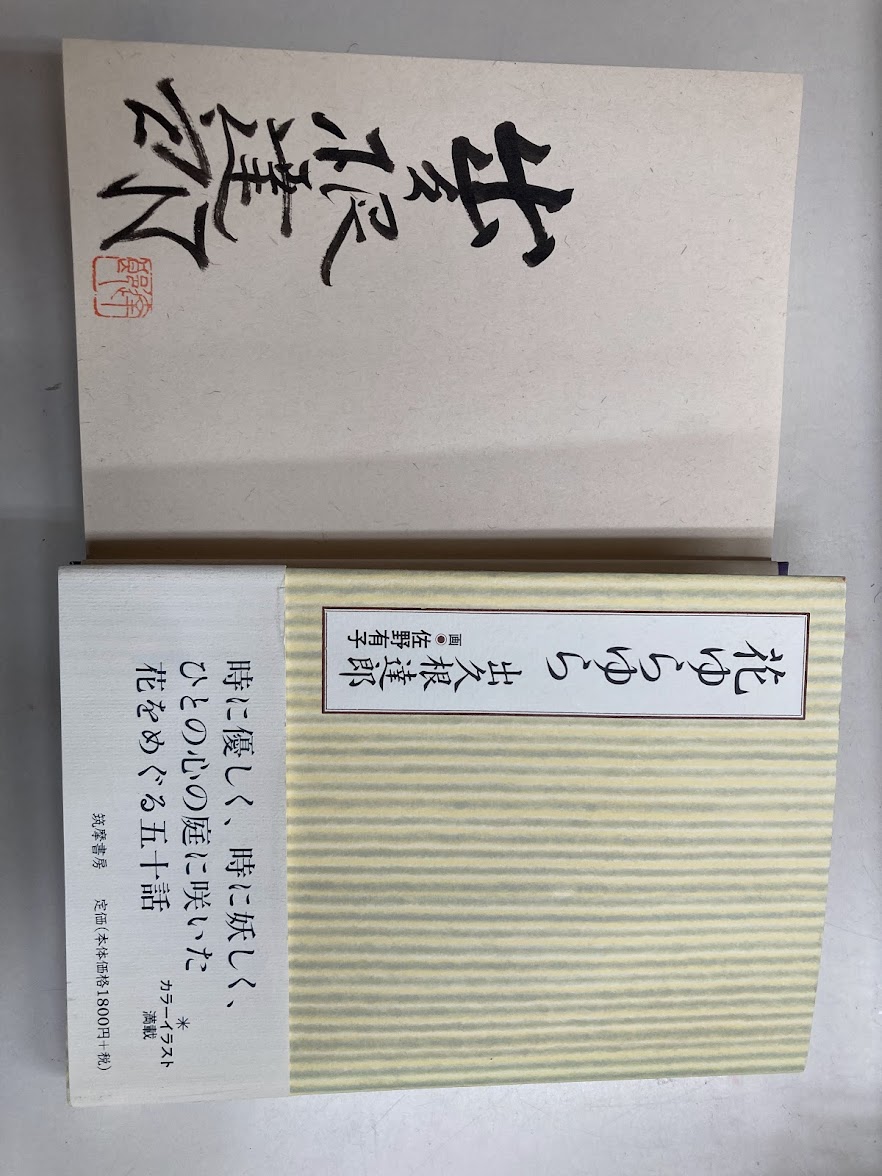 出久根達郎
花ゆらゆら
出久根達郎
画●佐野有子
時に優しく、時に妖しく、
ひとの心の庭に咲いた
花をめぐる五十話
米
カラーイラスト
満載
筑摩書房 定価(本体価格1800円+税)